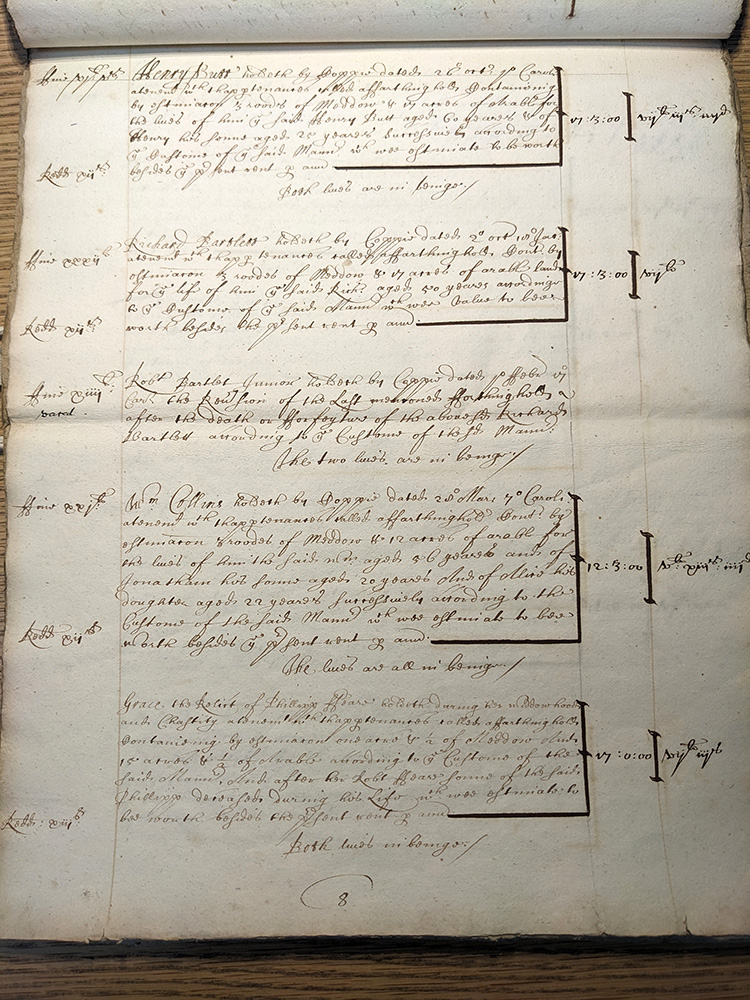 Henry Butt holdeth by Coppie dated 28 octr. Carol
atenemt wth thapptenances called affarthinghold Contameing
by estimacon 3 roods of Meddow & 17 acres of Arable for
the lives of him ye said Henry Butt aged 60 yeares & of
Henry his sonne aged 28 yeares Successively according to
ye Custome of ye said Mannr wch wee estimate to be worth
besides ye psent rent p ann
17:3:00
Redd xijs
Both lives are in beinge:/
ffine xxxijl
Richard Bartlett holdeth by Coppie dated 2o oct 18o Jac
atenemt wth thapptenances called affarthinghold Cont. by
estimacon 3 roodes of Meddow & 17 acres of arable land
for ye life of him ye said Rich: aged 50 yeares according
to ye Custome of ye said Mannr wch wee value to bee
worth besides the psent rent p ann:
17:3:00
Redd xijs
ffine xiiijl
vacat.
Robt Bartlet Junior holdeth by Coppie dated ffebr
Car: the Revsion of the Last mentioned ffarthinghold
after the death or fforfeyture of the abovesd Richard
Bartlett according to ye Custome of the sd Mannr:
The two lives are in beinge:/
ffine xxjl
Wm Collins holdeth by Coppie dated 28o Mar: 7o Carol:
atenemt wth thapptenances called affarthinghold Cont: by
estimacon 3 roodes of Meddow & 12 acres of arable for
the lives of him the said Wm: aged 56 yeares and of
Jonathan his sonne aged 20 yeares And of Alice his
doughter aged 22 yeares successively according to the
Custome of the said Mannr wch wee estimate to bee
worth besides ye psent rent p ann:
12:3:00
Redd xijs
The lives are all in beinge:/
Grace the Relict of Phillipp holdeth during her widdowhood
and Chastity atenemt wth thapptenances called affarthinghold
Contameing by estimacon one acre & 1/2 of Meddow And
15 acres & 1/2 of Arable according to ye Custome of the
said Mannr, And after her Robt sonne of the said
Phillipp deceased during his Life wch wee estimate to
bee worth besides the psent rent p ann
17:0:00
Redd: xiijs
Both lives in beinge:/
8